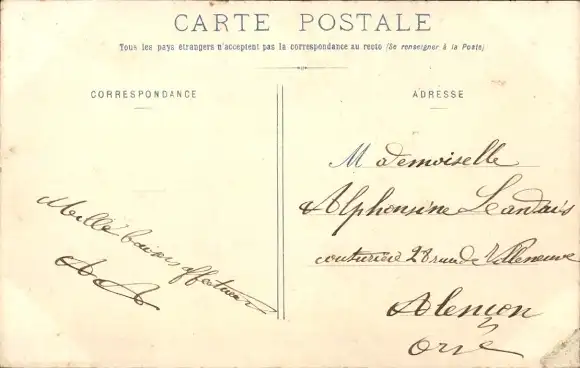 CARTE POSTALE
Tous les pays étrangers n'acceptent pas la correspondance au recto (Se renseigner à la Poste)
CORRESPONDANCE
ADRESSE
Mille baisers affectueux
Mademoiselle
Alphonsine Leandais
couturière 28 rue de Villeneuve
Alençon
Orne